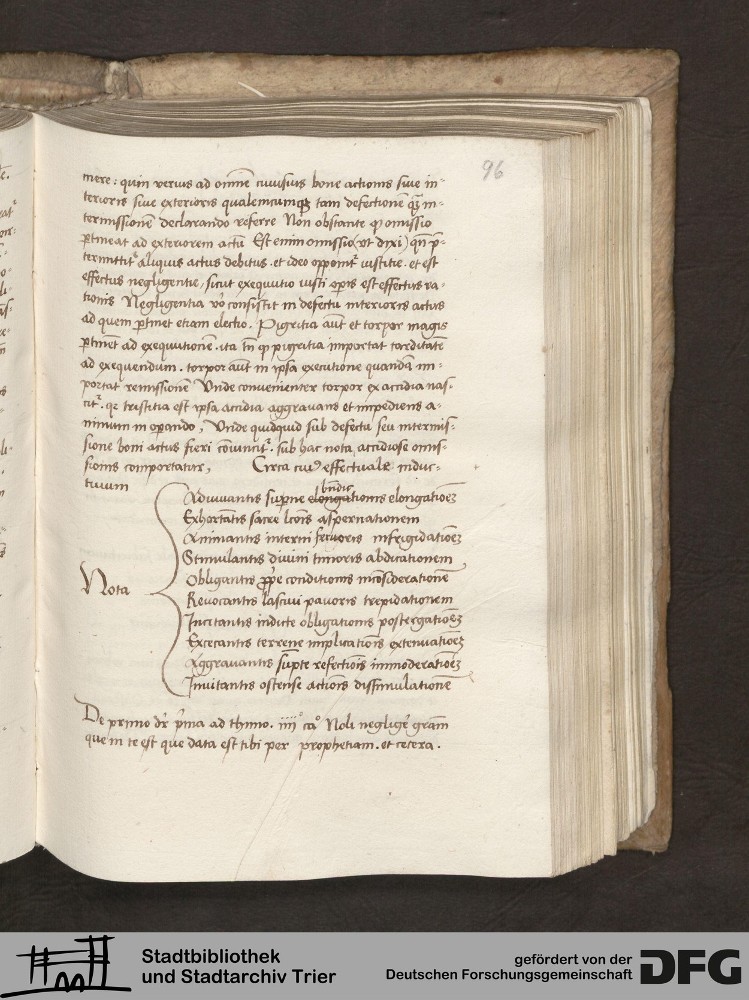 96
mere : quin verius ad omnē cuiusuis bone actionis siue in-
terioris siue exterioris qualemcumqꝫ tam defectionē qꝫ in-
termissionē declarando referre Non obstante ꝙ omissio
ꝑtineat ad exteriorem actū Est enim omissio (vt dixi) qn̄ p̄-
termittitᷣ aliquis actus debitus . et ideo opponitᷣ iustitie . et est
effectus negligentie , sicut exequutio iusti oꝑis est effectus ra-
tionis Negligentia vo᷒ consistit in defectu interioris actus
ad quem ꝑtinet etiam electio . Pigritia aūt et torpor magis
ꝑtinēt ad exequutionē . ita tn̄ ꝙ pigritia importat tarditatē
ad exequendum . torpor aūt in ipsa executione quandā im-
portat remissionē Vnde conuenienter torpor ex accidia nas-
citᷣ . qꝛ tristitia est ipsa accidia aggrauans et impediens a-
nimum in oꝑando , Vnde quidquid sub defectu seu intermis-
sione boni actus fieri cōuincitᷣ . sub hac nota accidiose omis-
sionis comportatur , Circa effectuale induc-
tiuum
Nota
bn̄dic
Adiuuantis suꝑne elongationis elongatiōeꝫ
Exhortātis sacre lc̄onis aspernationem
Animantis interni feruoris infrigidatiōeꝫ
Stimulantis diuini timoris abdicationem
Obligantis ꝓp̄e conditionis incōsiderationē
Reuocantis lasciui pauoris trepidationem
Incitantis indicte obligationis postergatiōeꝫ
Excecantis terrene implicatiōis extenuatiōeꝫ
Aggrauantis sūpte refectiōis immoderatiōeꝫ
Inuitantis ostense actiōis dissimulationē
De primo dr̄ p̄ma ad thimo . iiijº caº Noli negligē gr̄am
que in te est que data est tibi per prophetiam . et cetera .
Stadtbibliothek
und Stadtarchiv Trier
gefördert von der
Deutschen Forschungsgemeinschaft
DFG